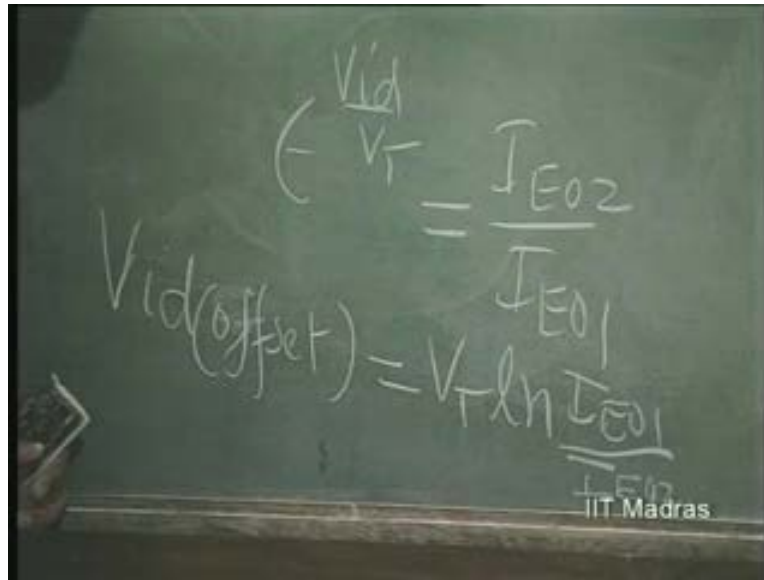 ϵ^(Vid/VT) = IE02/IE01
Vid(offset) = VT ln IE01/IE02
IIT Madras